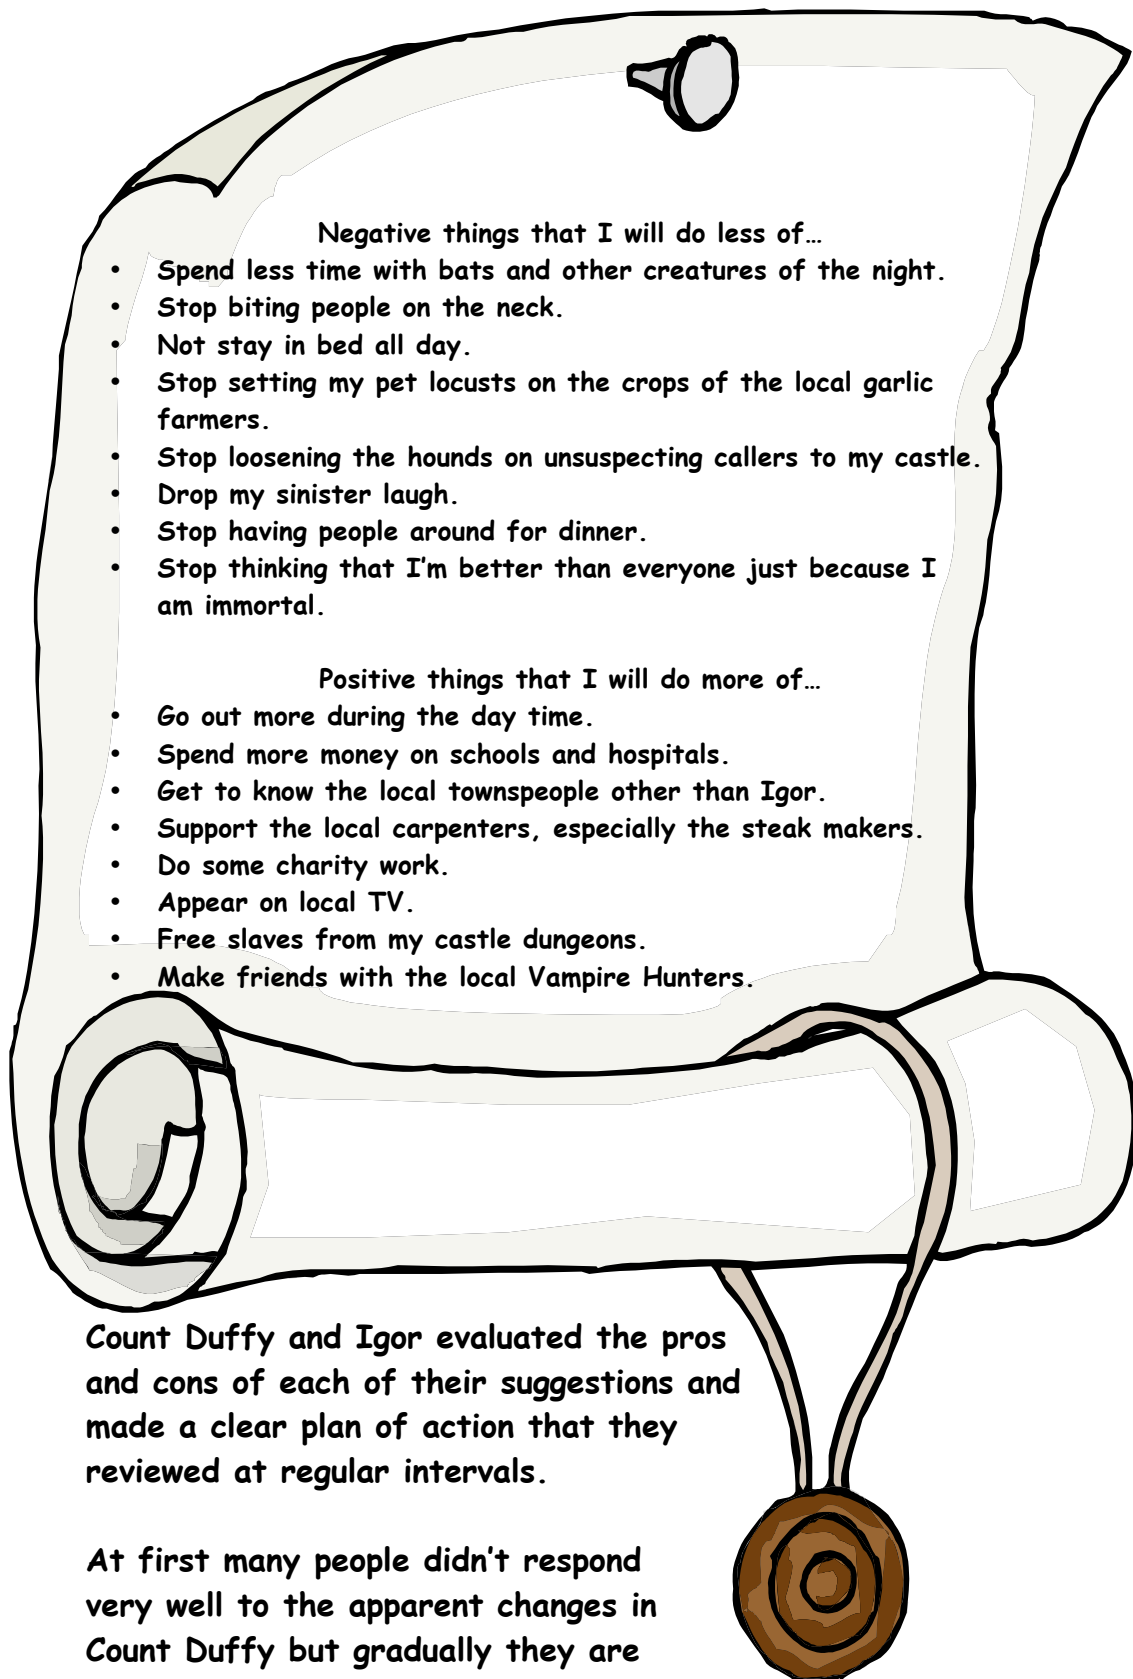 Negative things that I will do less of…
• Spend less time with bats and other creatures of the night.
• Stop biting people on the neck.
• Not stay in bed all day.
• Stop setting my pet locusts on the crops of the local garlic
farmers.
• Stop loosening the hounds on unsuspecting callers to my castle.
• Drop my sinister laugh.
• Stop having people around for dinner.
• Stop thinking that I'm better than everyone just because I
am immortal.
Positive things that I will do more of…
• Go out more during the day time.
• Spend more money on schools and hospitals.
• Get to know the local townspeople other than Igor.
• Support the local carpenters, especially the steak makers.
• Do some charity work.
• Appear on local TV.
• Free slaves from my castle dungeons.
• Make friends with the local Vampire Hunters.
Count Duffy and Igor evaluated the pros
and cons of each of their suggestions and
made a clear plan of action that they
reviewed at regular intervals.
At first many people didn't respond
very well to the apparent changes in
Count Duffy but gradually they are